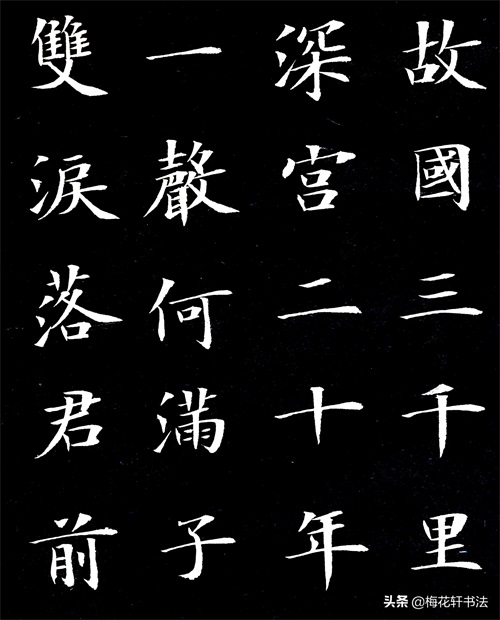 故國三千里
深宮二十年
一聲何滿子
雙淚落君前
头条 @梅花轩书法